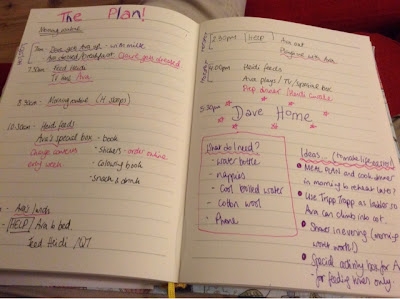 The Plan!
Morning routine
7am Dave get Ava up - with milk
Ava dressed/breakfast
7.30am Feed Heidi
TV time Ava
8.30am - Morning routine (H sleeps)
10.30am - Heidi feeds
Ava's special box - book
Change contents - Stickers - order online
every week - Colouring book
- Snack & drink
HELP / Ava to bed
Feed Heidi /
2:30pm HELP Ava out
Playtime with Ava
4:00pm Heidi feeds
Ava plays / TV /
Prep dinner / Heidi awake
5:30pm
Dave Home
What do I need?
- Water bottle
- nappies
- Cool boiled water
- Cotton wool
- Phone
Ideas (to make life easier)
Meal plan and cook dinner
in morning to reheat later?
Use Tripp Trapp as ladder so
Ava can climb into cot.
Shower in evening (morning
won't work!)
Special activity box for A
for feeding times only.